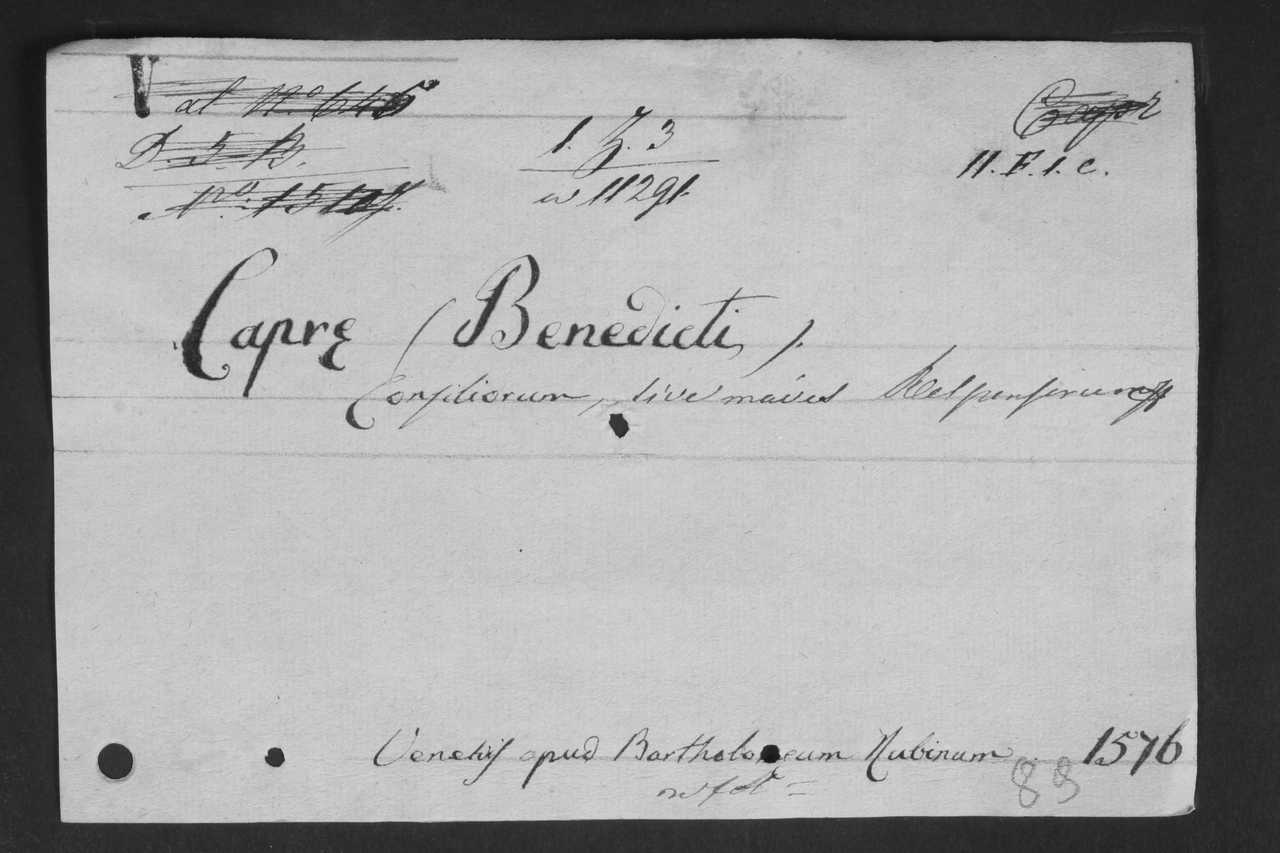 V al N.o 645
D. 5. B.
No. 1510
1. Z. 3
11291.
Capr
11. F. 1. c.
Capre (Benedicti).
Consiliorum, sive mavis Responsorum
Venetiis apud Bartholomeum Rubinum 1576
in fol.
83